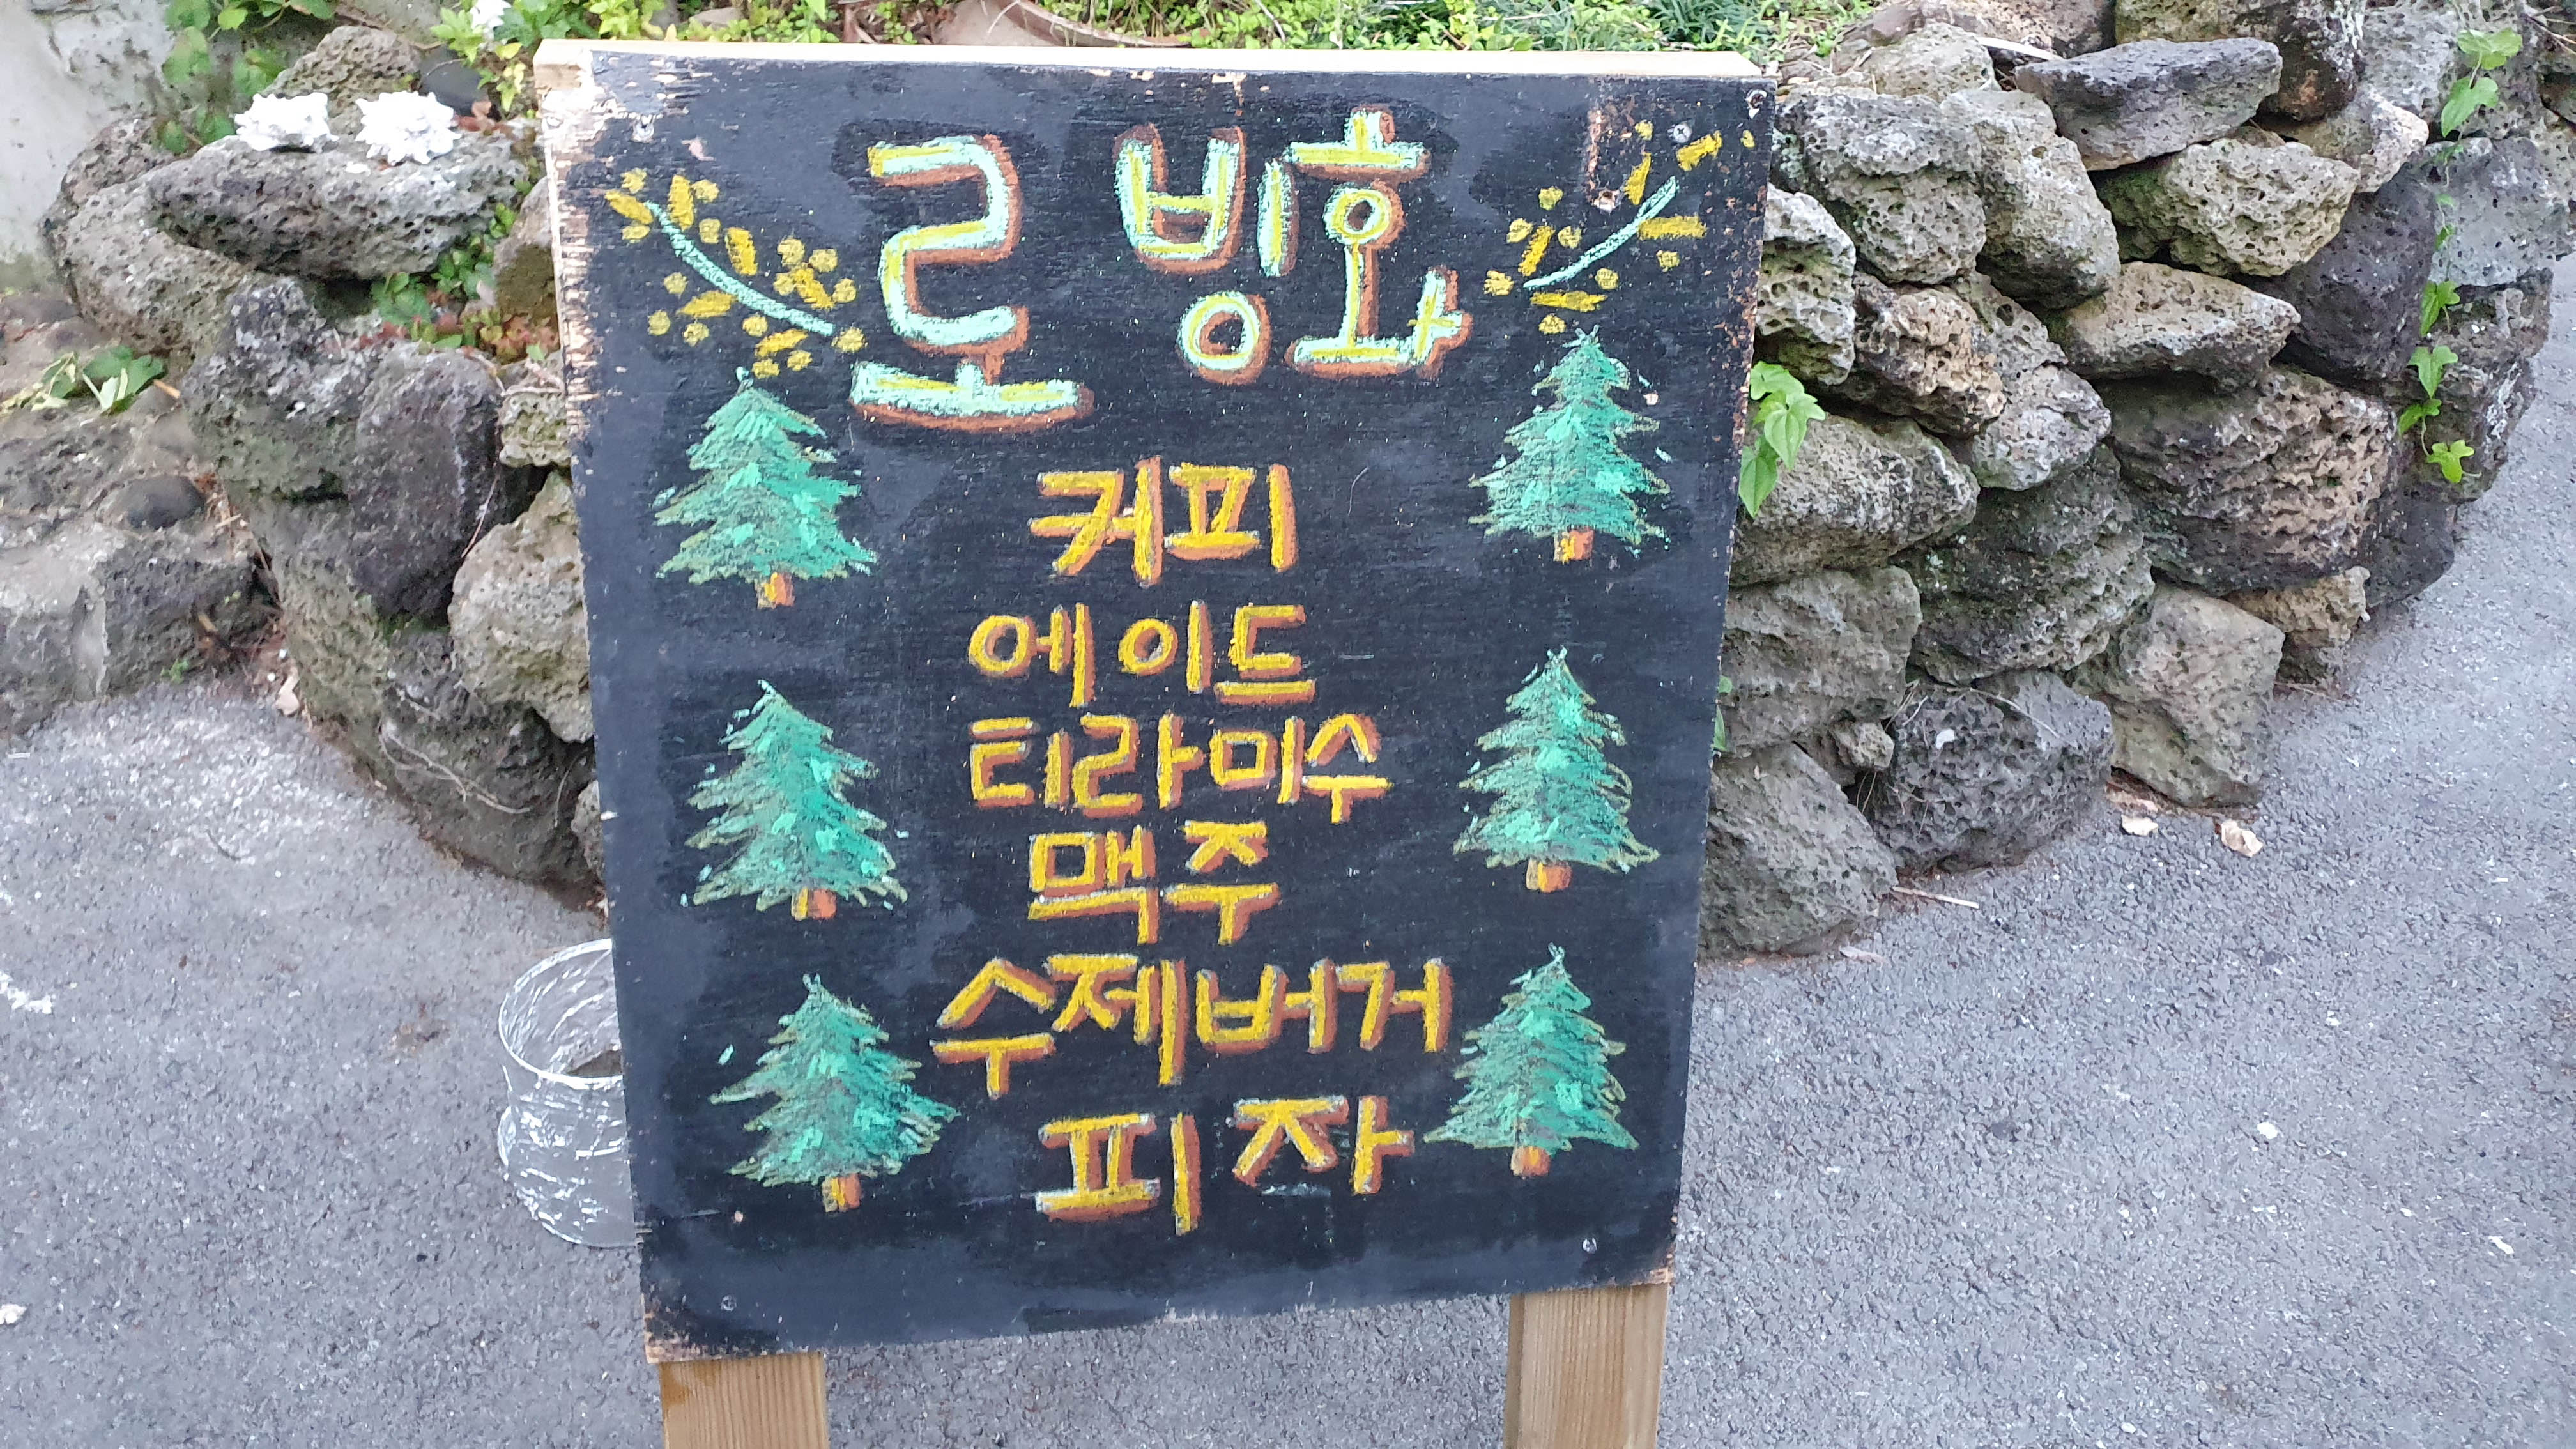 로빙화
커피
에이드
티라미수
맥주
수제버거
피자